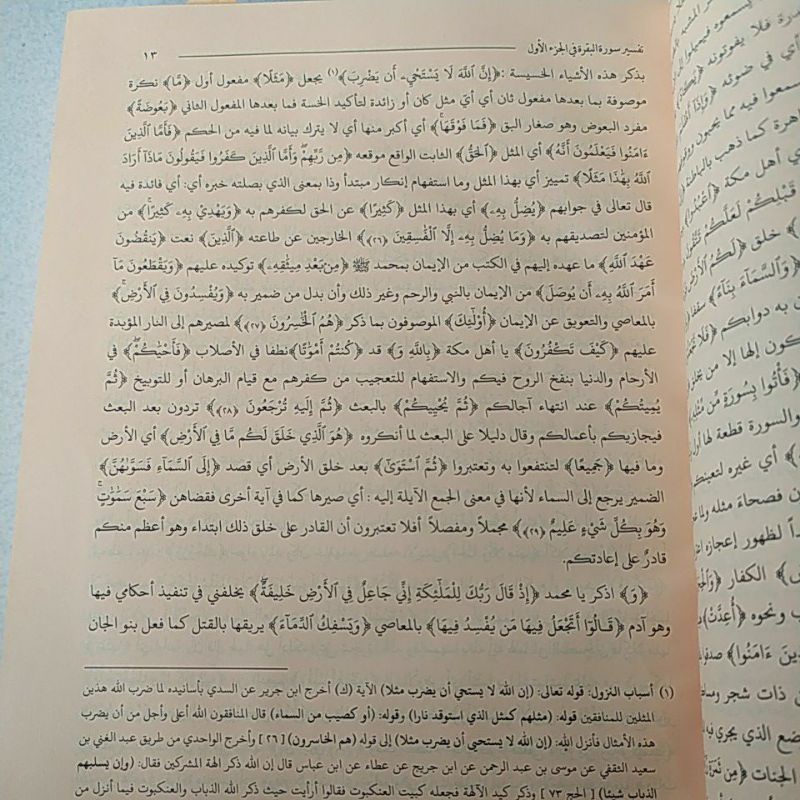 تفسير سورة البقرة في الجزء الأول ١٣
بذكر هذه الأشياء الخسيسة :﴿إِنَّ ٱللَّهَ لَا يَسْتَحْيِۦٓ أَن يَضْرِبَ﴾(١) يجعل ﴿مَثَلًا﴾ مفعول أول ﴿مَّا﴾ نكرة
موصوفة بما بعدها مفعول ثان أي أيّ مثل كان أو زائدة لتأكيد الخسة فما بعدها المفعول الثاني ﴿بَعُوضَةً﴾
مفرد البعوض وهو صغار البق ﴿فَمَا فَوْقَهَا﴾ أي أكبر منها أي لا يترك بيانه لما فيه من الحكم ﴿فَأَمَّا ٱلَّذِينَ
ءَامَنُوا۟ فَيَعْلَمُونَ أَنَّهُ﴾ أي المثل ﴿ٱلْحَقُّ﴾ الثابت الواقع موقعه ﴿مِن رَّبِّهِمْ وَأَمَّا ٱلَّذِينَ كَفَرُوا۟ فَيَقُولُونَ مَاذَآ أَرَادَ
ٱللَّهُ بِهَٰذَا مَثَلًا﴾ تمييز أي بهذا المثل وما استفهام إنكار مبتدأ وذا بمعنى الذي بصلته خبره أي: أي فائدة فيه
قال تعالى في جوابهم ﴿يُضِلُّ بِهِۦ﴾ أي بهذا المثل ﴿كَثِيرًا﴾ عن الحق لكفرهم به ﴿وَيَهْدِي بِهِۦ كَثِيرًا﴾ من
المؤمنين لتصديقهم به ﴿وَمَا يُضِلُّ بِهِۦٓ إِلَّا ٱلْفَٰسِقِينَ (٢٦)﴾ الخارجين عن طاعته ﴿ٱلَّذِينَ﴾ نعت ﴿يَنقُضُونَ
عَهْدَ ٱللَّهِ﴾ ما عهده إليهم في الكتب من الإيمان بمحمد ﷺ ﴿مِنۢ بَعْدِ مِيثَٰقِهِۦ﴾ توكيده عليهم ﴿وَيَقْطَعُونَ مَآ
أَمَرَ ٱللَّهُ بِهِۦٓ أَن يُوصَلَ﴾ من الإيمان بالنبي والرحم وغير ذلك وأن بدل من ضمير به ﴿وَيُفْسِدُونَ فِي ٱلْأَرْضِ﴾
بالمعاصي والتعويق عن الإيمان ﴿أُو۟لَٰٓئِكَ﴾ الموصوفون بما ذكر ﴿هُمُ ٱلْخَٰسِرُونَ (٢٧)﴾ لمصيرهم إلى النار المؤبدة
عليهم ﴿كَيْفَ تَكْفُرُونَ﴾ يا أهل مكة ﴿بِٱللَّهِ وَ﴾ قد ﴿كُنتُمْ أَمْوَٰتًا﴾ نطفا في الأصلاب ﴿فَأَحْيَٰكُمْ﴾ في
الأرحام والدنيا بنفخ الروح فيكم والاستفهام للتعجيب من كفرهم مع قيام البرهان أو للتوبيخ ﴿ثُمَّ
يُمِيتُكُمْ﴾ عند انتهاء آجالكم ﴿ثُمَّ يُحْيِيكُمْ﴾ بالبعث ﴿ثُمَّ إِلَيْهِ تُرْجَعُونَ (٢٨)﴾ تردون بعد البعث
فيجازيكم بأعمالكم وقال دليلا على البعث لما أنكروه ﴿هُوَ ٱلَّذِي خَلَقَ لَكُم مَّا فِي ٱلْأَرْضِ﴾ أي الأرض
وما فيها ﴿جَمِيعًا﴾ لتنتفعوا به وتعتبروا ﴿ثُمَّ ٱسْتَوَىٰٓ﴾ بعد خلق الأرض أي قصد ﴿إِلَى ٱلسَّمَآءِ فَسَوَّىٰهُنَّ﴾
الضمير يرجع إلى السماء لأنها في معنى الجمع الآيلة إليه : أي صيرها كما في آية أخرى فقضاهن ﴿سَبْعَ سَمَٰوَٰتٍ
وَهُوَ بِكُلِّ شَيْءٍ عَلِيمٌ (٢٩)﴾ مجملاً ومفصلاً أفلا تعتبرون أن القادر على خلق ذلك ابتداء وهو أعظم منكم
قادرٌ على إعادتكم.
﴿وَ﴾ اذكر يا محمد ﴿إِذْ قَالَ رَبُّكَ لِلْمَلَٰٓئِكَةِ إِنِّي جَاعِلٌ فِي ٱلْأَرْضِ خَلِيفَةً﴾ يخلفني في تنفيذ أحكامي فيها
وهو آدم ﴿قَالُوٓا۟ أَتَجْعَلُ فِيهَا مَن يُفْسِدُ فِيهَا﴾ بالمعاصي ﴿وَيَسْفِكُ ٱلدِّمَآءَ﴾ يريقها بالقتل كما فعل بنو الجان
(١) أسباب النزول: قوله تعالى: (إن الله لا يستحي أن يضرب مثلا) الآية (ك) أخرج ابن جرير عن السدي بأسانيده لما ضرب الله هذين
المثلين للمنافقين قوله: (مثلهم كمثل الذي استوقد نارا) وقوله: (أو كصيب من السماء) قال المنافقون الله أعلى وأجل من أن يضرب
هذه الأمثال فأنزل الله: (إن الله لا يستحيى أن يضرب مثلا) إلى قوله (هم الخاسرون) [٢٦] وأخرج الواحدي من طريق عبد الغني بن
سعيد الثقفي عن موسى بن عبد الرحمن عن ابن جريج عن عطاء عن ابن عباس قال إن الله ذكر الهة المشركين فقال: (وإن يسلبهم
الذباب شيئا) [الحج ٧٣] وذكر كيد الآلهة فجعله كبيت العنكبوت فقالوا أرأيت حيث ذكر الله الذباب والعنكبوت فيما أنزل من